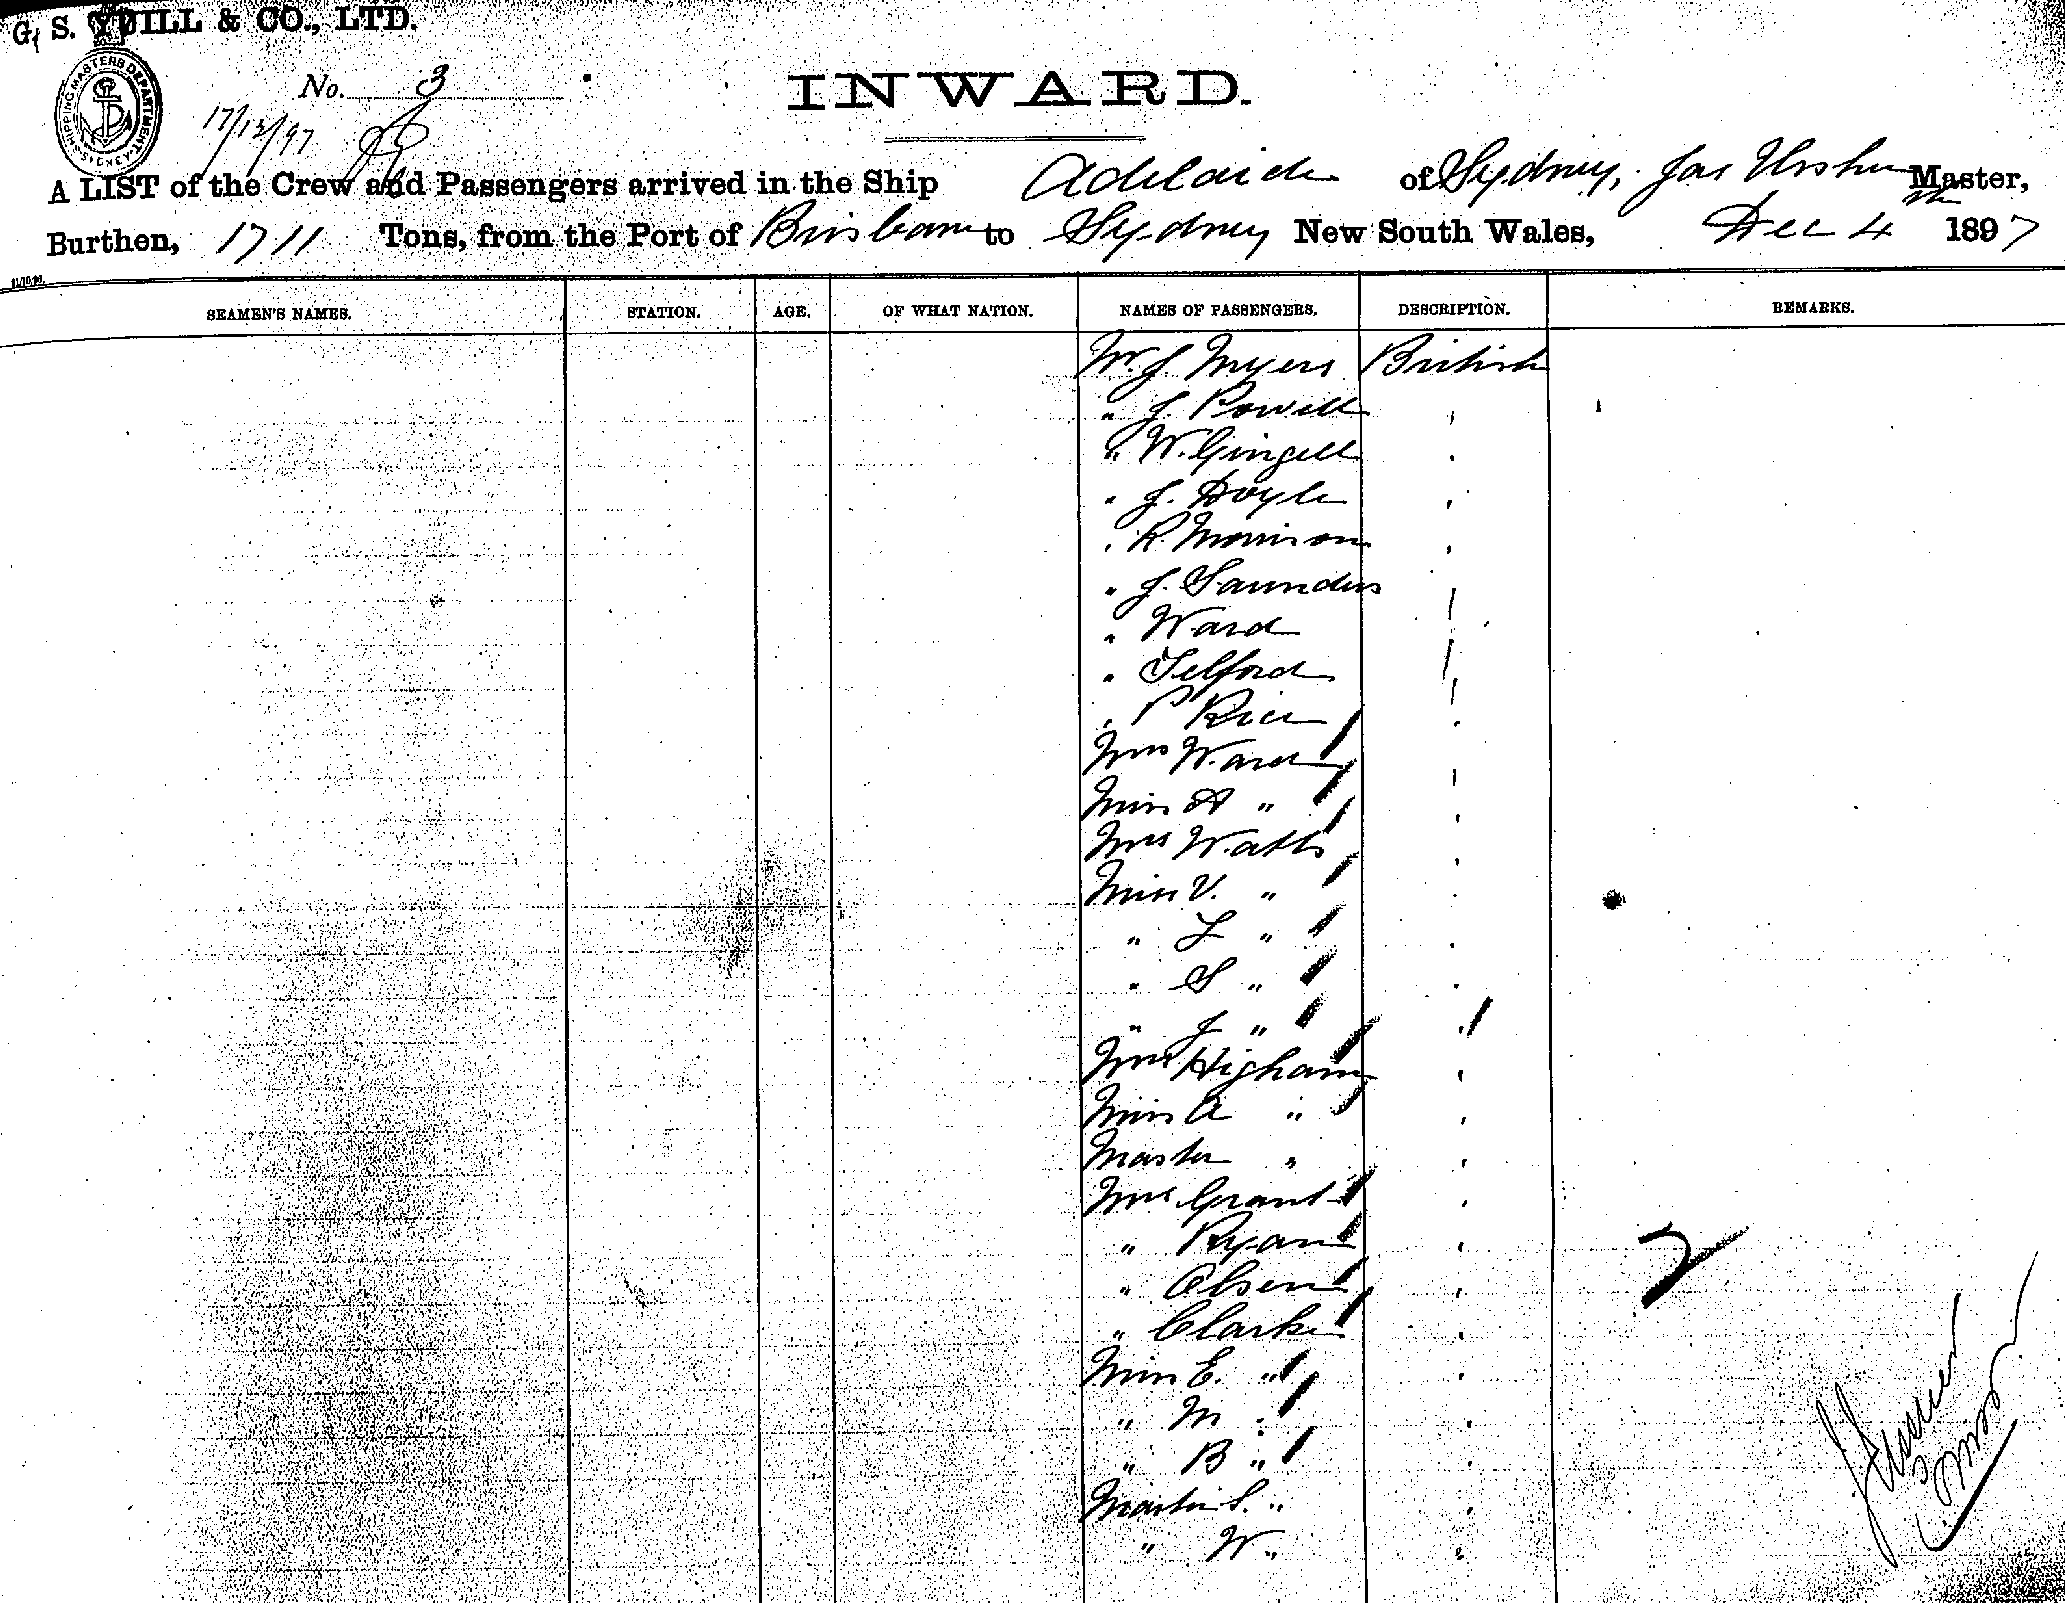 G. S. YUILL & CO., LTD.
SHIPPING MASTERS DEPARTMENT SYDNEY
No. 3
INWARD.
17/12/97
A LIST of the Crew and Passengers arrived in the Ship Adelaide of Sydney, Jas Master,
Burthen, 1711 Tons, from the Port of Brisbane to Sydney New South Wales, Dec 4th 1897
SEAMEN'S NAMES. STATION. AGE. OF WHAT NATION. NAMES OF PASSENGERS. DESCRIPTION. REMARKS.
Mr. J Myers British
" J. Powell "
" W. Gingell "
" J. Doyle "
" R. Morrison "
" J. Saunders "
" Ward "
" Telford "
" P Rice "
Mrs Ward "
Miss A " "
Mrs Watts "
Miss V. " "
" L " "
" S " "
" J " "
Mrs Higham "
Miss A " "
Master " "
Mrs Grant "
" Ryan "
" Olsen "
" Clarke "
Miss E. " "
" M " "
" B " "
Master S. " "
" W " "